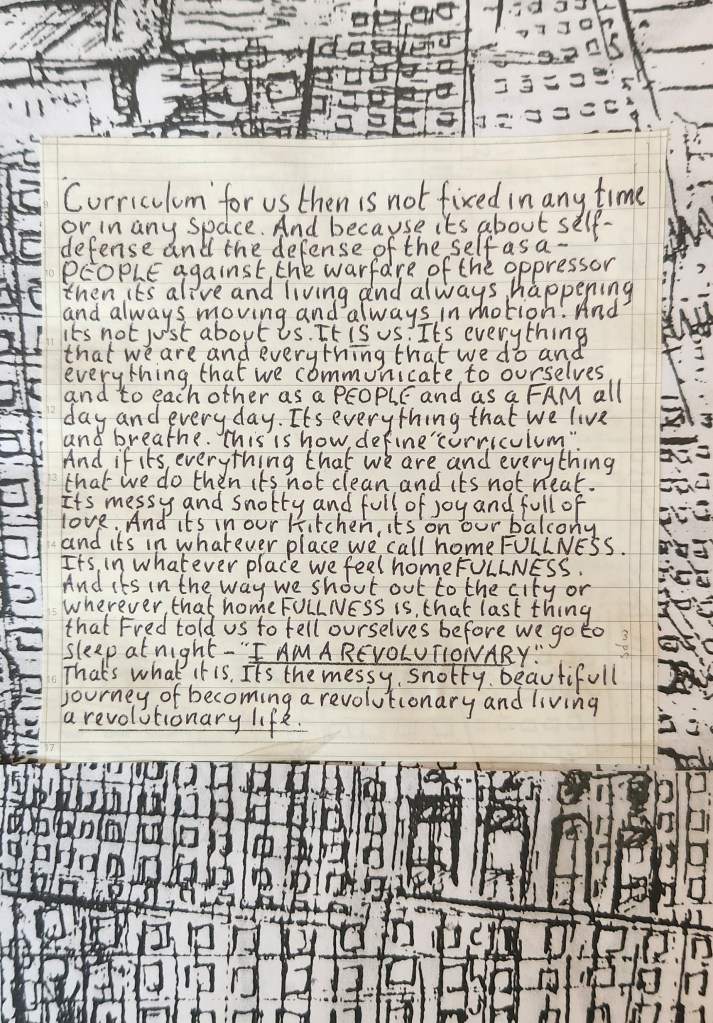 'Curriculum' for us then is not fixed in any time
or in any space. And because its about self-
defense and the defense of the self as a -
PEOPLE against the warfare of the oppressor
then its alive and living and always happening
and always moving and always in motion. And
its not just about us. It IS us. Its everything
that we are and everything that we do and
everything that we communicate to ourselves
and to each other as a PEOPLE and as a FAM all
day and every day. Its everything that we live
and breathe. This is how define "curriculum".
And if its everything that we are and everything
that we do then its not clean and its not neat.
Its messy and snotty and full of joy and full of
love. And its in our kitchen, its on our balcony
and its in whatever place we call homeFULLNESS.
Its in whatever place we feel homeFULLNESS.
And its in the way we shout out to the city or
wherever that homeFULLNESS is, that last thing
that Fred told us to tell ourselves before we go to
sleep at night - "I AM A REVOLUTIONARY."
Thats what it is. Its the messy, snotty, beautifull
journey of becoming a revolutionary and living
a revolutionary life.
9
10
11
12
13
14
15
16
17